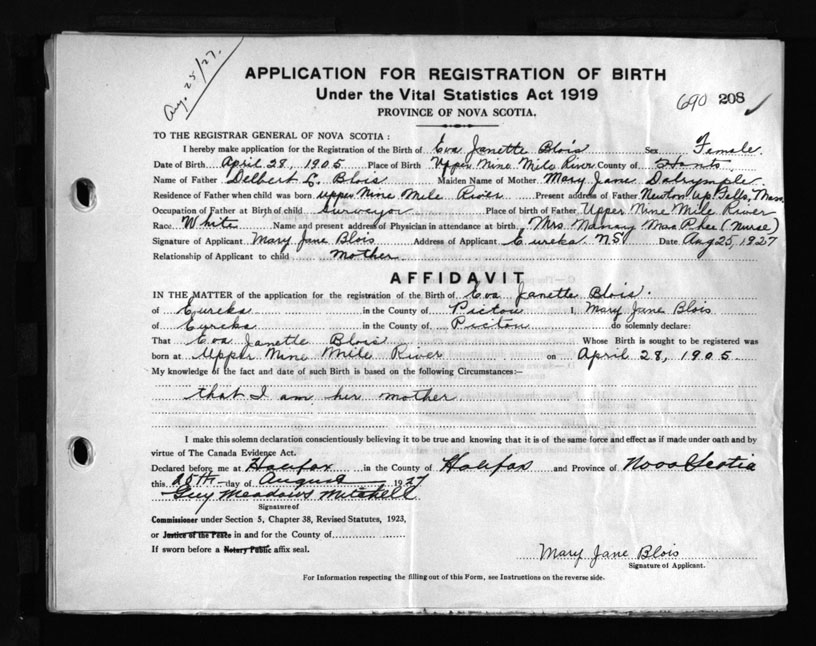 Aug. 25/27.
APPLICATION FOR REGISTRATION OF BIRTH
Under the Vital Statistics Act 1919
PROVINCE OF NOVA SCOTIA.
690 208
TO THE REGISTRAR GENERAL OF NOVA SCOTIA :
I hereby make application for the Registration of the Birth of Eva Janette Blois Sex Female.
Date of Birth April 28, 1905 Place of Birth Upper Nine Mile River County of Hants
Name of Father Delbert L. Blois Maiden Name of Mother Mary Jane Dalrymple
Residence of Father when child was born Upper Nine Mile River Present address of Father Newton Up Falls, Mass
Occupation of Father at Birth of child Surveyor Place of birth of Father Upper Nine Mile River
Race White Name and present address of Physician in attendance at birth Mrs. Mac Rhee (Nurse)
Signature of Applicant Mary Jane Blois Address of Applicant Eureka NS Date Aug 25, 1927
Relationship of Applicant to child Mother
AFFIDAVIT
IN THE MATTER of the application for the registration of the Birth of Eva Janette Blois.
of Eureka in the County of Pictou I, Mary Jane Blois
of Eureka in the County of Pictou do solemnly declare:
That Eva Janette Blois Whose Birth is sought to be registered was
born at Upper Nine Mile River on April 28, 1905.
My knowledge of the fact and date of such Birth is based on the following Circumstances:—
that I am her mother
I make this solemn declaration conscientiously believing it to be true and knowing that it is of the same force and effect as if made under oath and by
virtue of The Canada Evidence Act.
Declared before me at Halifax in the County of Halifax and Province of Nova Scotia
this 25th day of August 1927
Guy Meadows Mitchell
Signature of
Commissioner under Section 5, Chapter 38, Revised Statutes, 1923,
or Justice of the Peace in and for the County of
If sworn before a Notary Public affix seal.
Mary Jane Blois
Signature of Applicant.
For Information respecting the filling out of this Form, see Instructions on the reverse side.